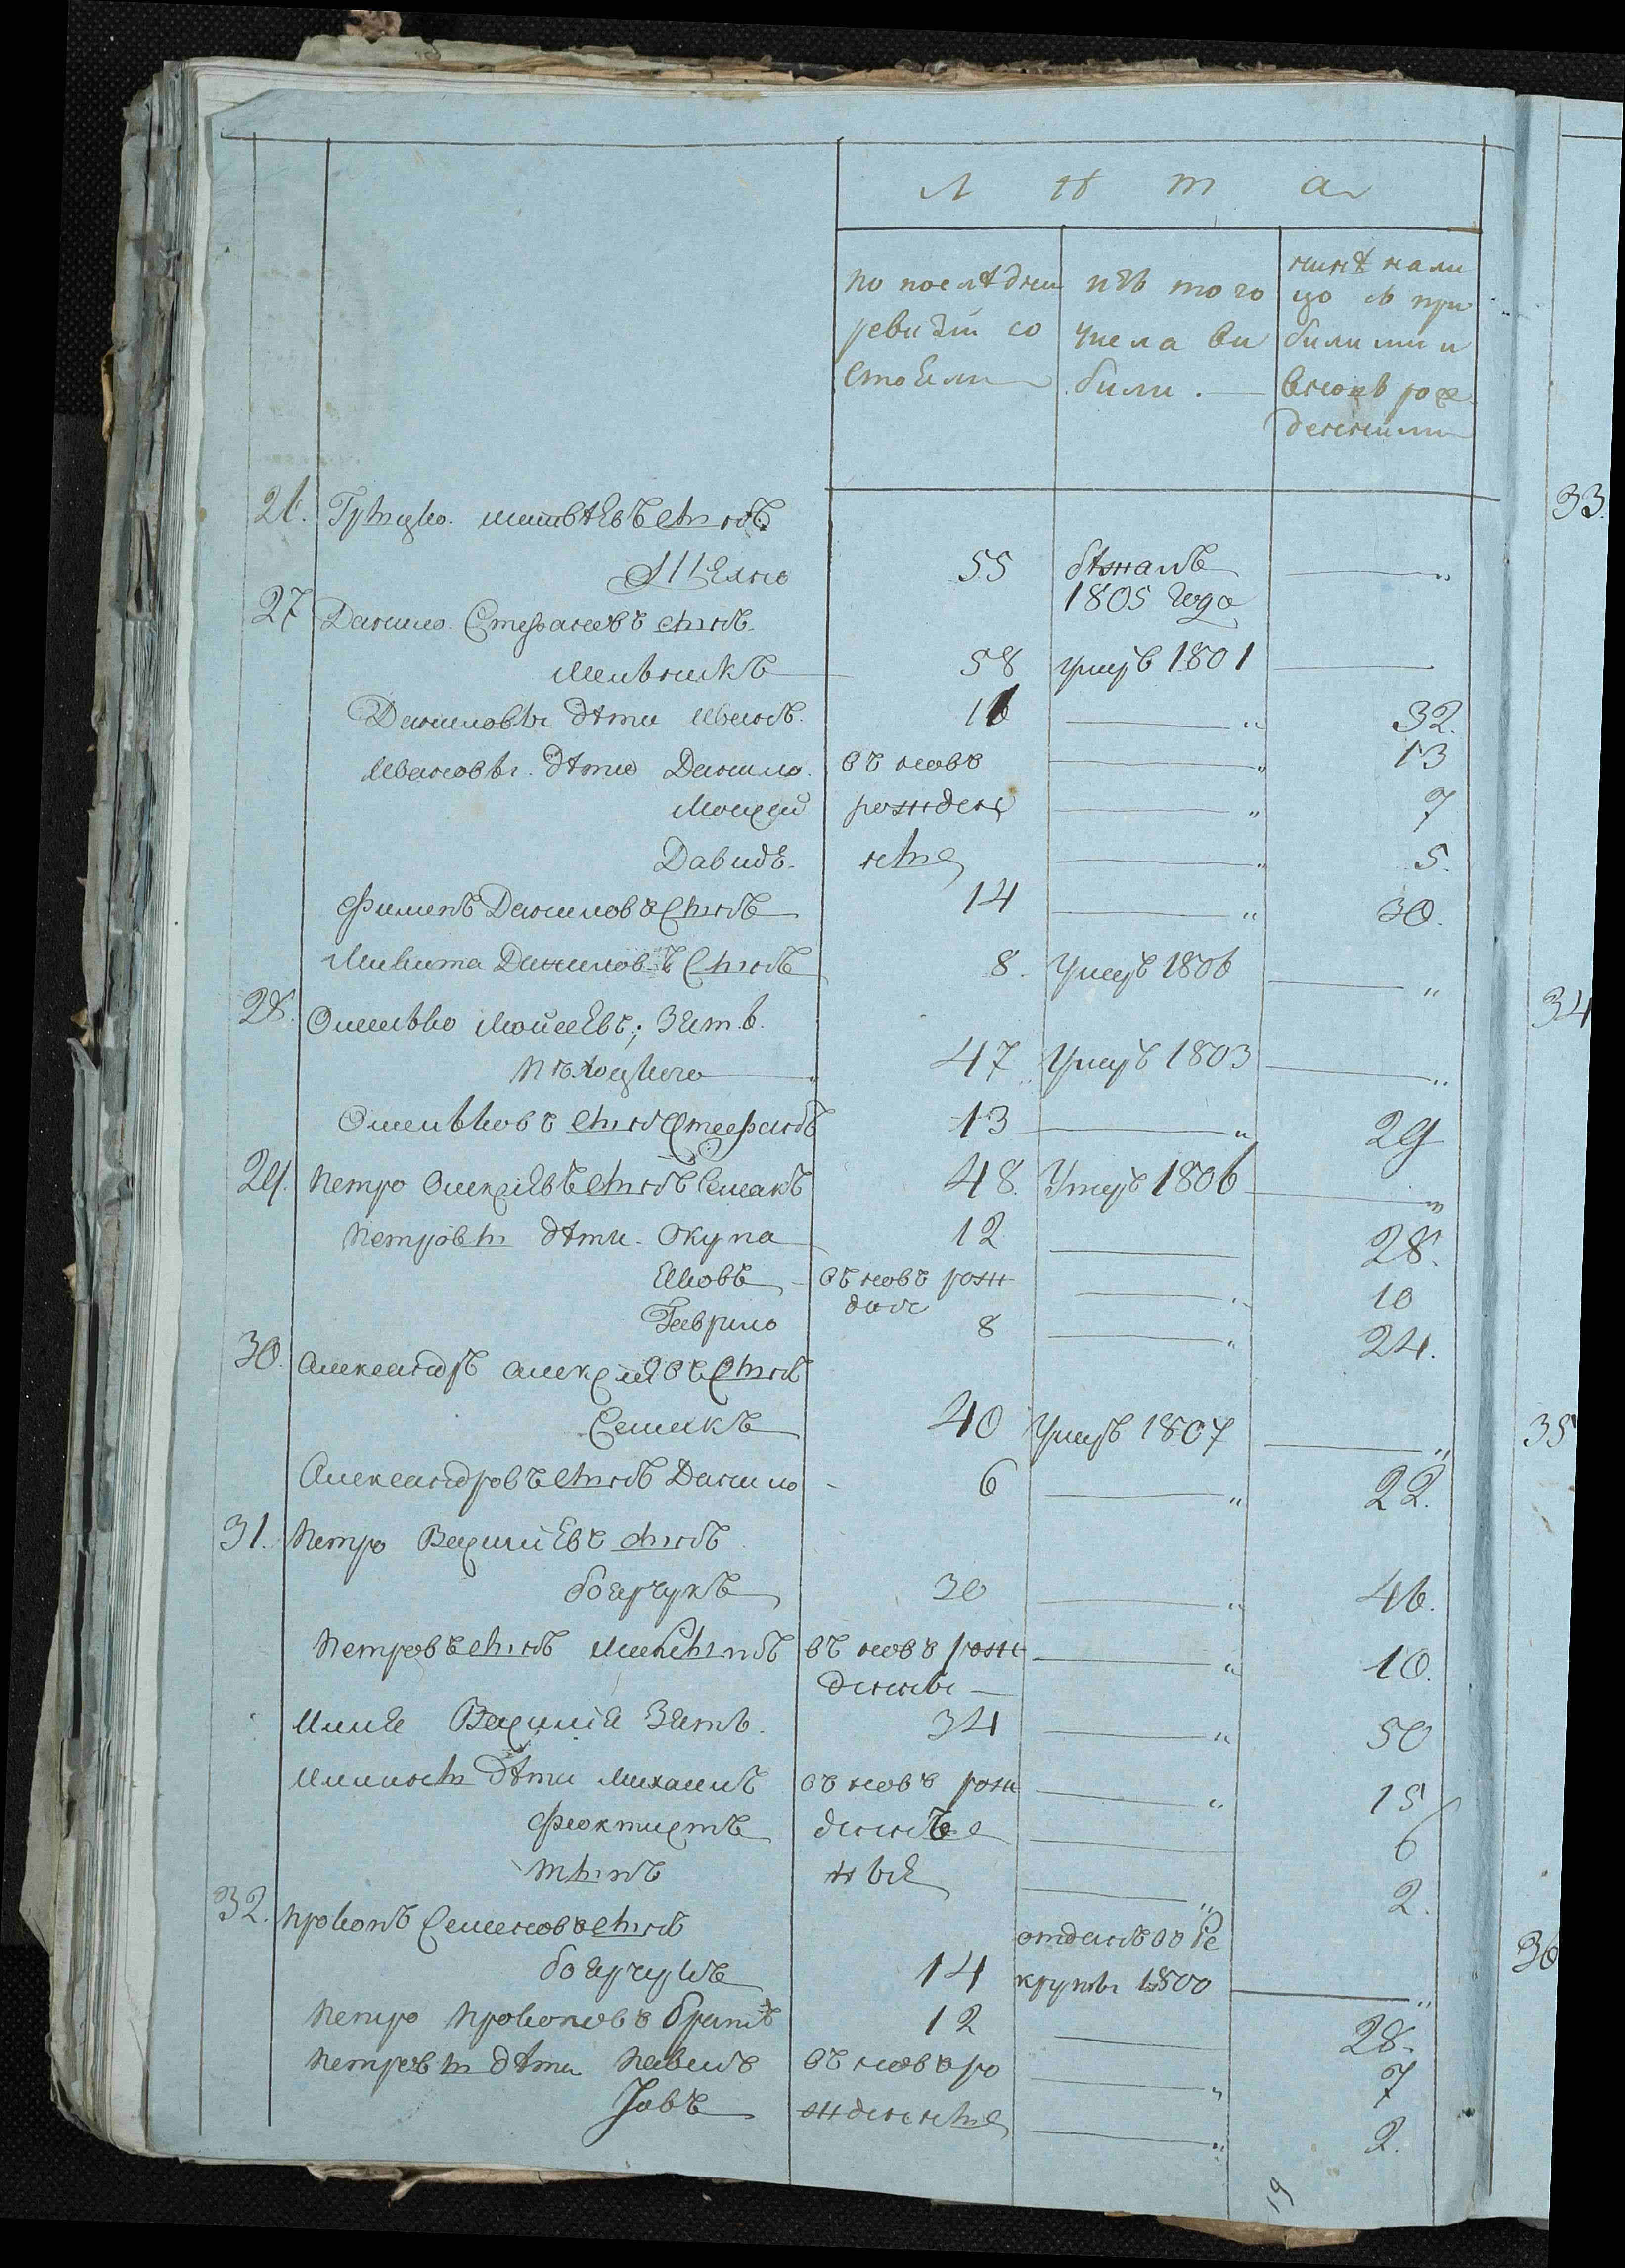 Л ѣ т а
по последней ревизіи состояли
изъ того числа вибили .
нинѣ налицо съ прибилими и вновь рожденними
26. Грыцко. Матвѣевъ сынъ
55 бѣжалъ
1805 года
27 Данило. Стефановъ сынъ
Мельникъ 58 умеръ 1801
Даниловы дѣти Иванъ. 16 32.
Ивановы. дѣти Данило. въ новъ 13
Моисей рожден 7
Давидъ. ные 5.
Филипъ Даниловъ сынъ 14 30.
Микита Даниловъ сынъ 8. Умеръ 1806
28. Омелько Мойсеевъ; зять
47 Умеръ 1803
Омельковъ сынъ Стефанъ 13 29
29. Петро Олексіевъ сынъ Семакъ 48. Умеръ 1806
Петровы дѣти. Окула 12 28.
Яковъ въ новъ рож 10
Гаврило 8 24.
30. Александръ Алексіевъ сынъ
Семакъ 40 Умеръ 1807
Александровъ сынъ Данило 6 22.
31. Петро Василіевъ сынъ
боярчукъ 30 46.
Петровъ сынъ въ новъ рож 10.
денны
Илия Василія зять. 34 50
Илиины дѣти Михаилъ въ новъ рож 15
Феоктистъ 6
2.
32. Прокопъ Семеновъ сынъ отданъ въ ре
боярчукъ 14 круты 1800
Петро Прокоповъ братъ 12 28.
Петровы дѣти Павелъ въ новъ ро 7
Іовъ жденные 2.
19
33.
34
35
36